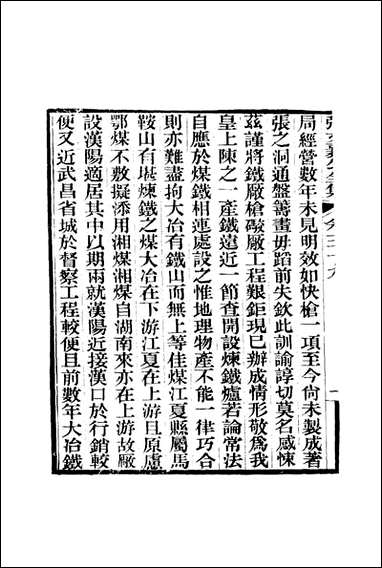 局經營數年未見明效如快槍一項至今尙未製成著
張之洞通盤籌畫毋蹈前失欽此訓諭諄切莫名感悚
茲謹將鐵廠槍礮廠工程艱鉅現已辦成情形敬爲我
皇上陳之一產鐵遠近一節查開設煉鐵爐若論常法
自應於煤鐵相連處設之惟地理物產不能一律巧合
則亦難盡拘大冶有鐵山而無上等佳煤江夏縣屬馬
鞍山有堪煉鐵之煤大冶在下游江夏在上游且原慮
鄂煤不敷擬添用湘煤湘煤自湖南來亦在上游故廠
設漢陽適居其中以期兩就漢陽近接漢口於行銷較
便又近武昌省城於督察工程較便且前數年大冶鐵